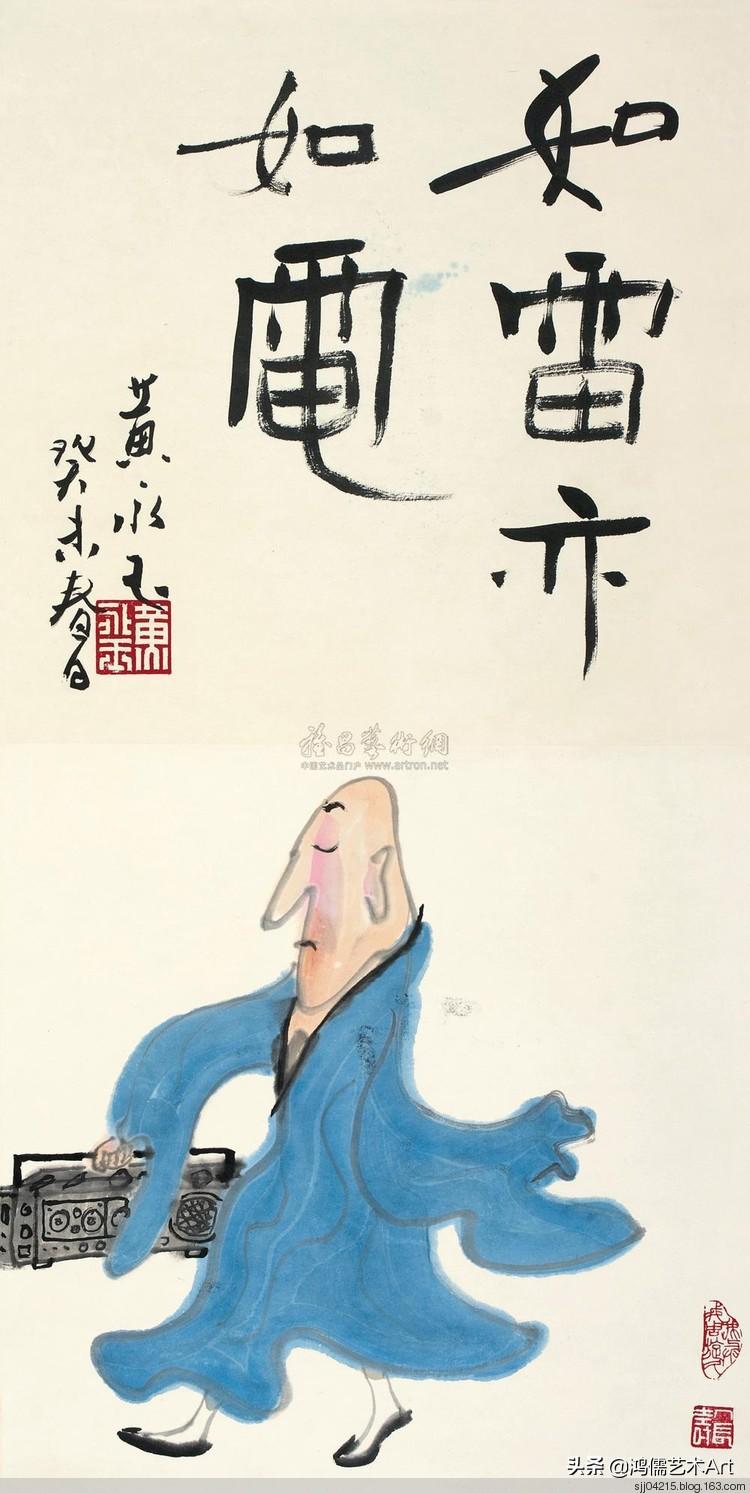 如雷亦
如電
黄永玉
癸未春日
黄永玉
雅昌藝術網
中国艺术品门户 www.artron.net
头条 @鸿儒艺术Art
sjj04215.blog.163.com